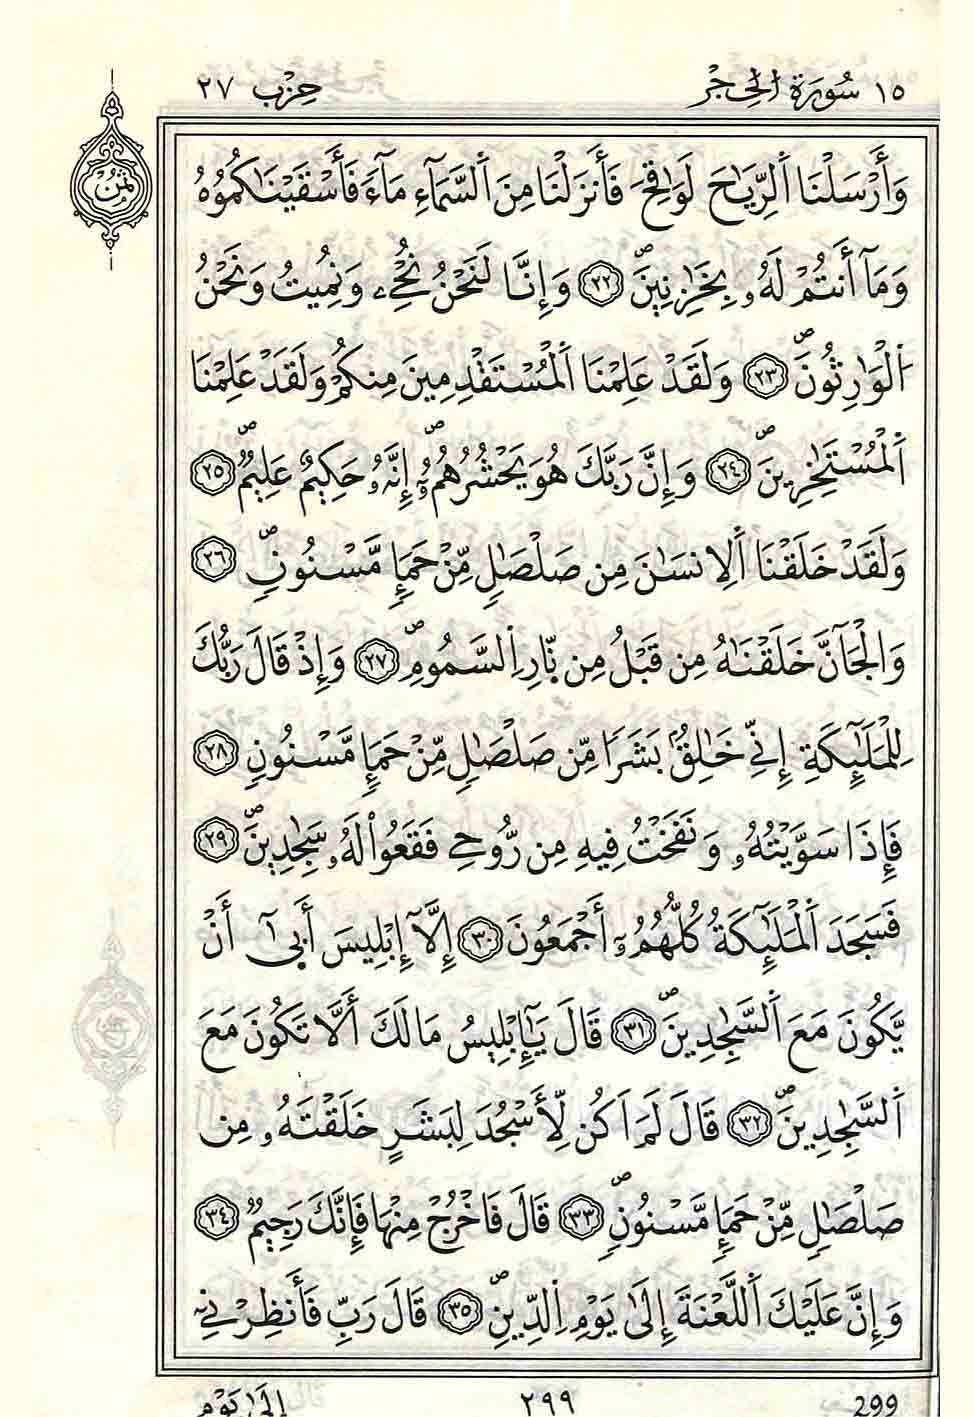 ١٥ سُورَةُ الْحِجْر حِزْب ٢٧
ثُمُن
وَأَرْسَلْنَا اَ۬لرِّيَٰحَ لَوَٰقِحَ فَأَنزَلْنَا مِنَ اَ۬لسَّمَآءِ مَآءٗ فَأَسْقَيْنَٰكُمُوهُ
وَمَآ أَنتُمْ لَهُۥ بِخَٰزِنِينَۖ ٢٢ وَإِنَّا لَنَحْنُ نُحْيِۦ وَنُمِيتُ وَنَحْنُ
اُ۬لْوَٰرِثُونَۖ ٢٣ وَلَقَدْ عَلِمْنَا اَ۬لْمُسْتَقْدِمِينَ مِنكُمْ وَلَقَدْ عَلِمْنَا
اَ۬لْمُسْتَـٰٔخِرِينَۖ ٢٤ وَإِنَّ رَبَّكَ هُوَ يَحْشُرُهُمُۥٓۖ إِنَّهُۥ حَكِيمٌ عَلِيمٞۖ ٢٥
وَلَقَدْ خَلَقْنَا اَ۬لِانسَٰنَ مِن صَلْصَٰلٖ مِّنْ حَمَإٖ مَّسْنُونٖۖ ٢٦
وَالْجَآنَّ خَلَقْنَٰهُ مِن قَبْلُ مِن نّ۪ارِ اِ۬لسَّمُومِۖ ٢٧ وَإِذْ قَالَ رَبُّكَ
لِلْمَلَٰٓئِكَةِ إِنِّے خَٰلِقُۢ بَشَراٗ مِّن صَلْصَٰلٖ مِّنْ حَمَإٖ مَّسْنُونٖ ٢٨
فَإِذَا سَوَّيْتُهُۥ وَنَفَخْتُ فِيهِ مِن رُّوحِے فَقَعُواْ لَهُۥ سَٰجِدِينَۖ ٢٩
فَسَجَدَ اَ۬لْمَلَٰٓئِكَةُ كُلُّهُمُۥٓ أَجْمَعُونَ ٣٠ إِلَّآ إِبْلِيسَ أَب۪يٰٓ أَنْ
يَّكُونَ مَعَ اَ۬لسَّٰجِدِينَۖ ٣١ قَالَ يَٰٓإِبْلِيسُ مَا لَكَ أَلَّا تَكُونَ مَعَ
اَ۬لسَّٰجِدِينَۖ ٣٢ قَالَ لَمَ اَكُن لِّأَسْجُدَ لِبَشَرٍ خَلَقْتَهُۥ مِن
صَلْصَٰلٖ مِّنْ حَمَإٖ مَّسْنُونٖۖ ٣٣ قَالَ فَاخْرُجْ مِنْهَا فَإِنَّكَ رَجِيمٞ ٣٤
وَإِنَّ عَلَيْكَ اَ۬للَّعْنَةَ إِلَىٰ يَوْمِ اِ۬لدِّينِۖ ٣٥ قَالَ رَبِّ فَأَنظِرْنِےٓ
299 ٢٩٩ إِلَىٰ يَوْمِ